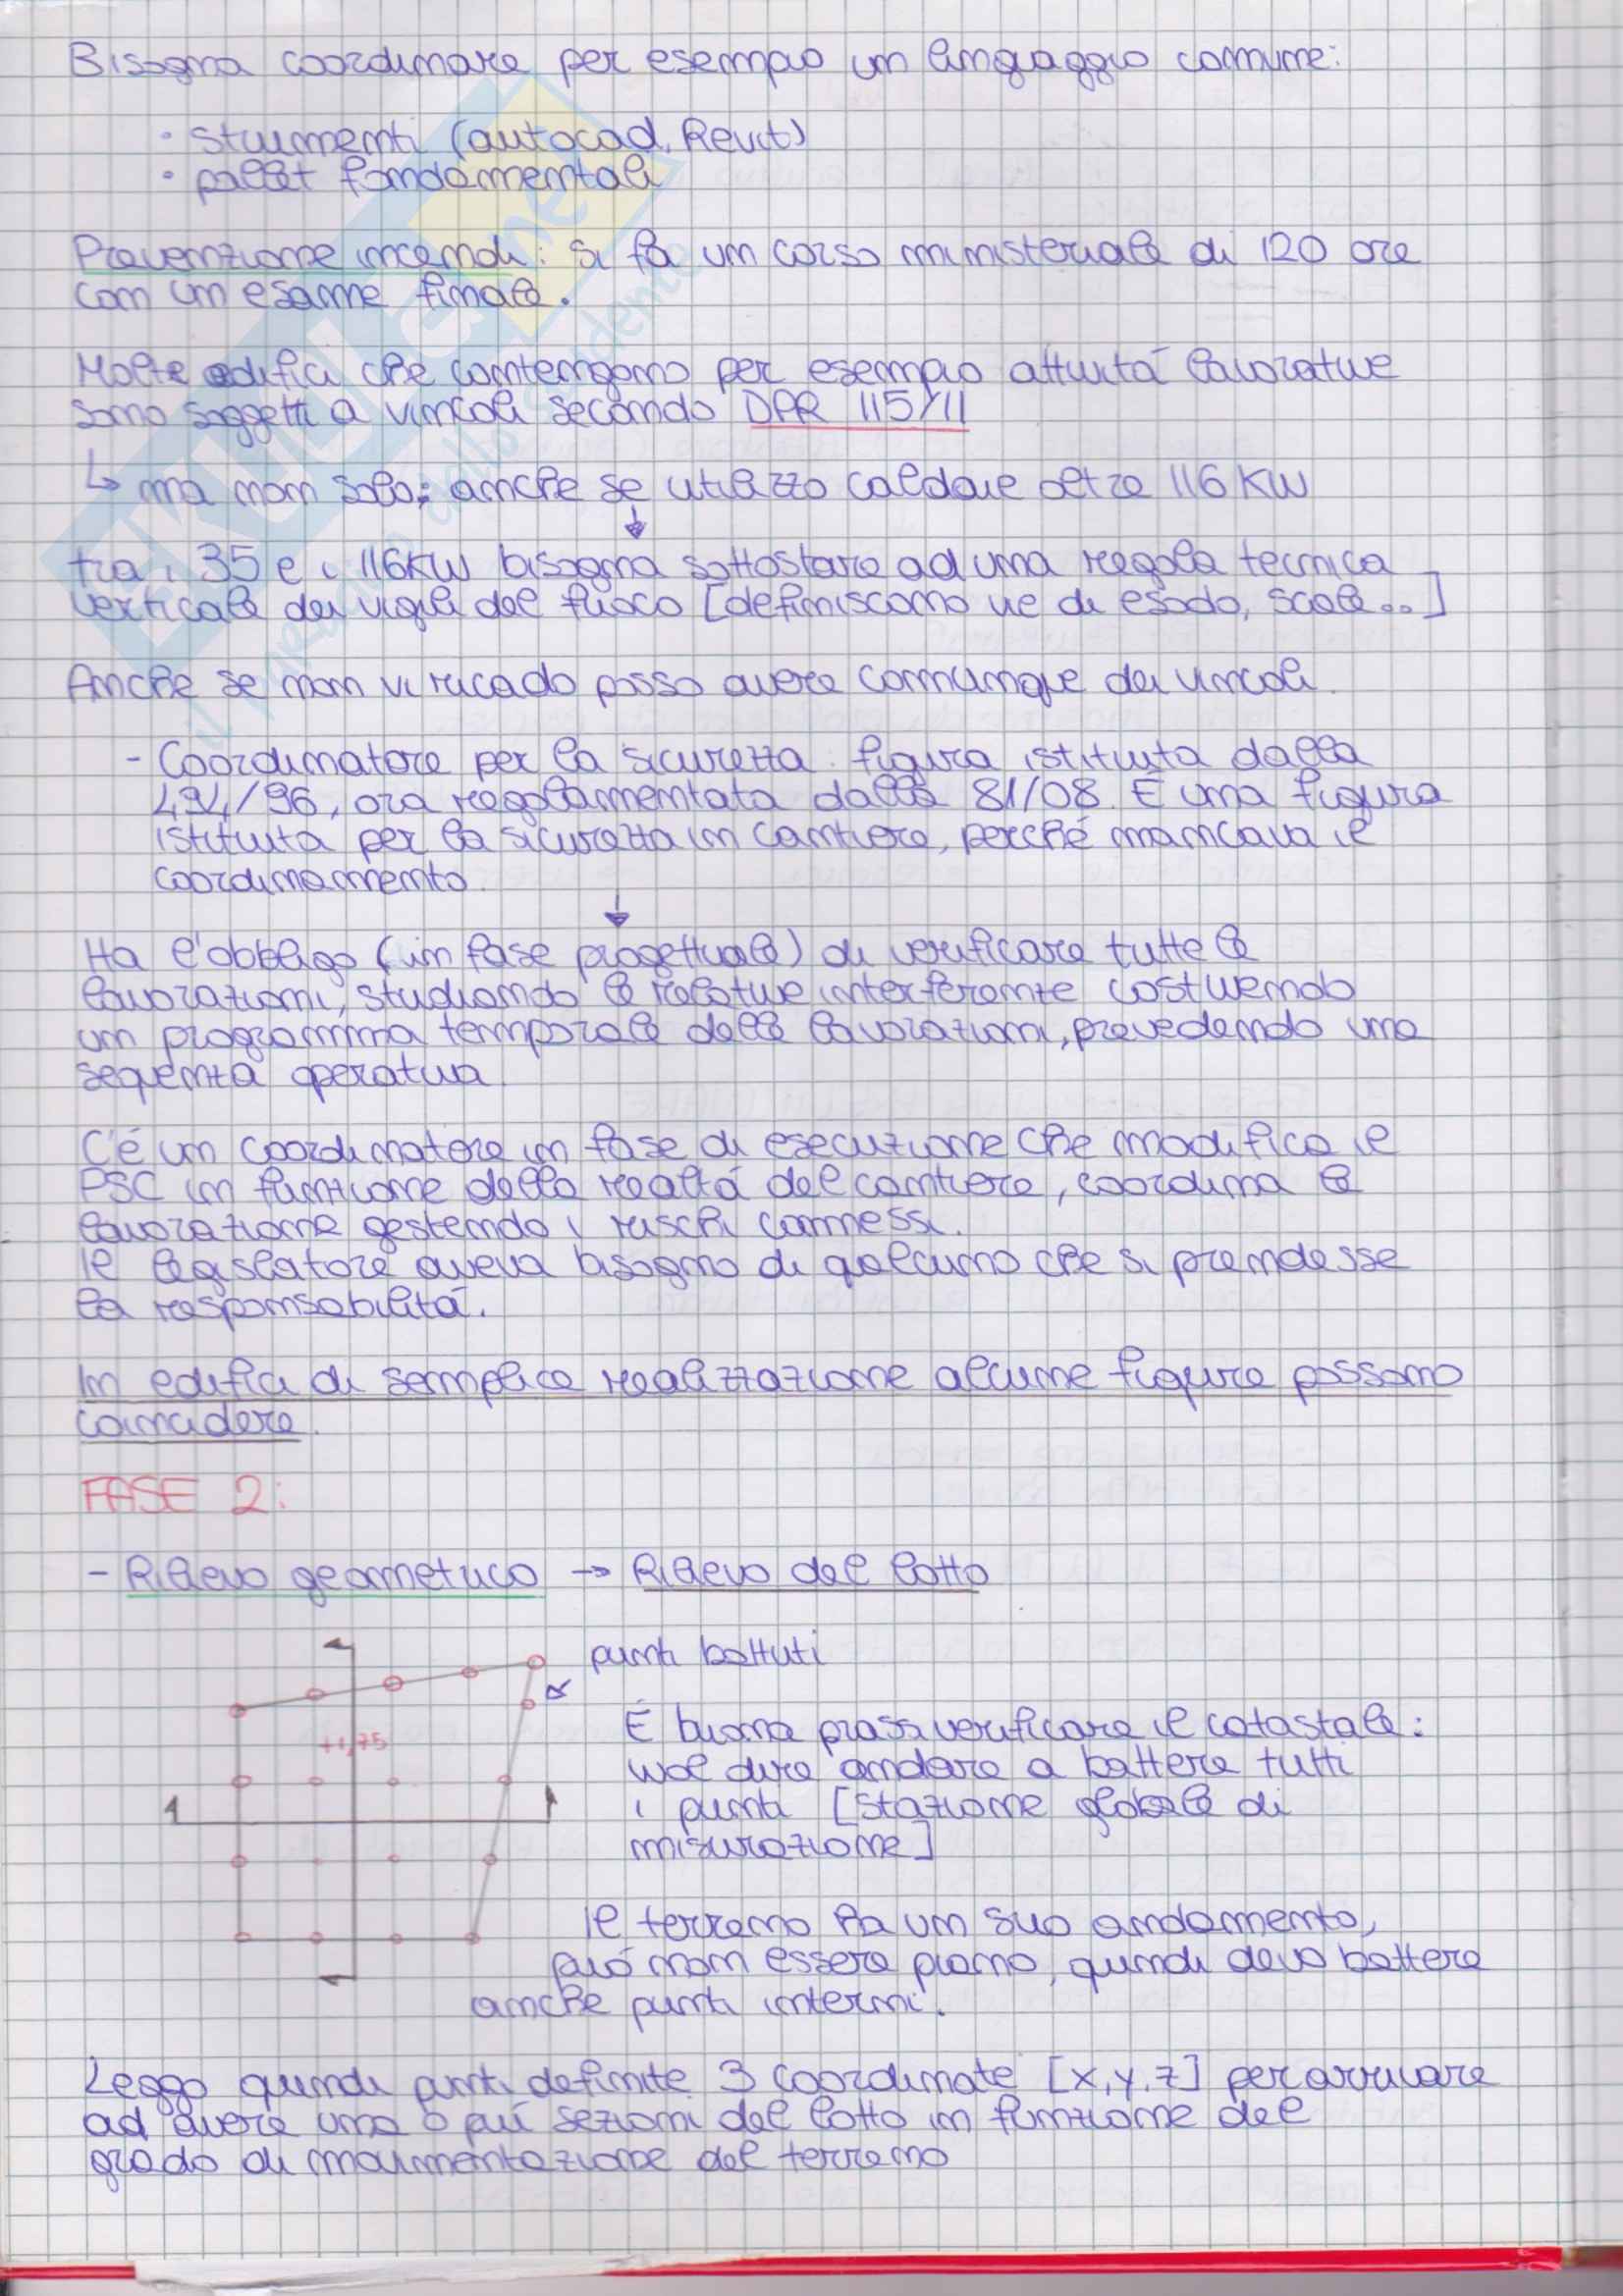 Bisogna coordinare per esempio un linguaggio comune:
• strumenti (autocad, Revit)
• pallet fondamentali
Prevenzione incendi: si fa un corso ministeriale di 120 ore
con un esame finale.
Molte edifici che contengono per esempio attività lavorative
sono soggetti a vincoli secondo DPR 115/11
↳ ma non solo; anche se utilizzo caldaie oltre 116 KW
↓
tra i 35 e i 116KW bisogna sottostare ad una regola tecnica
verticale dei vigili del fuoco [definiscono vie di esodo, scale..]
Anche se non vi ricado posso avere comunque dei vincoli.
- Coordinatore per la sicurezza: figura istituita dalla
494/96, ora regolamentata dalla 81/08. É una figura
istituita per la sicurezza in cantiere, perché mancava il
coordinamento.
↓
Ha l'obbligo (in fase progettuale) di verificare tutte le
lavorazioni, studiando le relative interferenze costruendo
un programma temporale delle lavorazioni, prevedendo una
sequenza operativa.
C'é un coordinatore in fase di esecuzione che modifica il
PSC in funzione della realtá del cantiere, coordina le
lavorazione gestendo i rischi connessi.
Il legislatore aveva bisogno di qualcuno che si prendesse
la responsabilitá.
In edifici di semplice realizzazione alcune figure possono
coincidere.
FASE 2:
- Rilievo geometrico → Rilievo del lotto
punti battuti
α
+1,75
É buona prassi verificare il catastale:
vuol dire andare a battere tutti
i punti [stazione globale di
misurazione]
Il terreno ha un suo andamento,
puó non essere piano, quindi devo battere
anche punti interni.
Leggo quindi punti definite 3 coordinate [x,y,z] per arrivare
ad avere una o piú sezioni del lotto in funzione del
grado di movimentazione del terreno
EKUIO
il paradiso dello studente